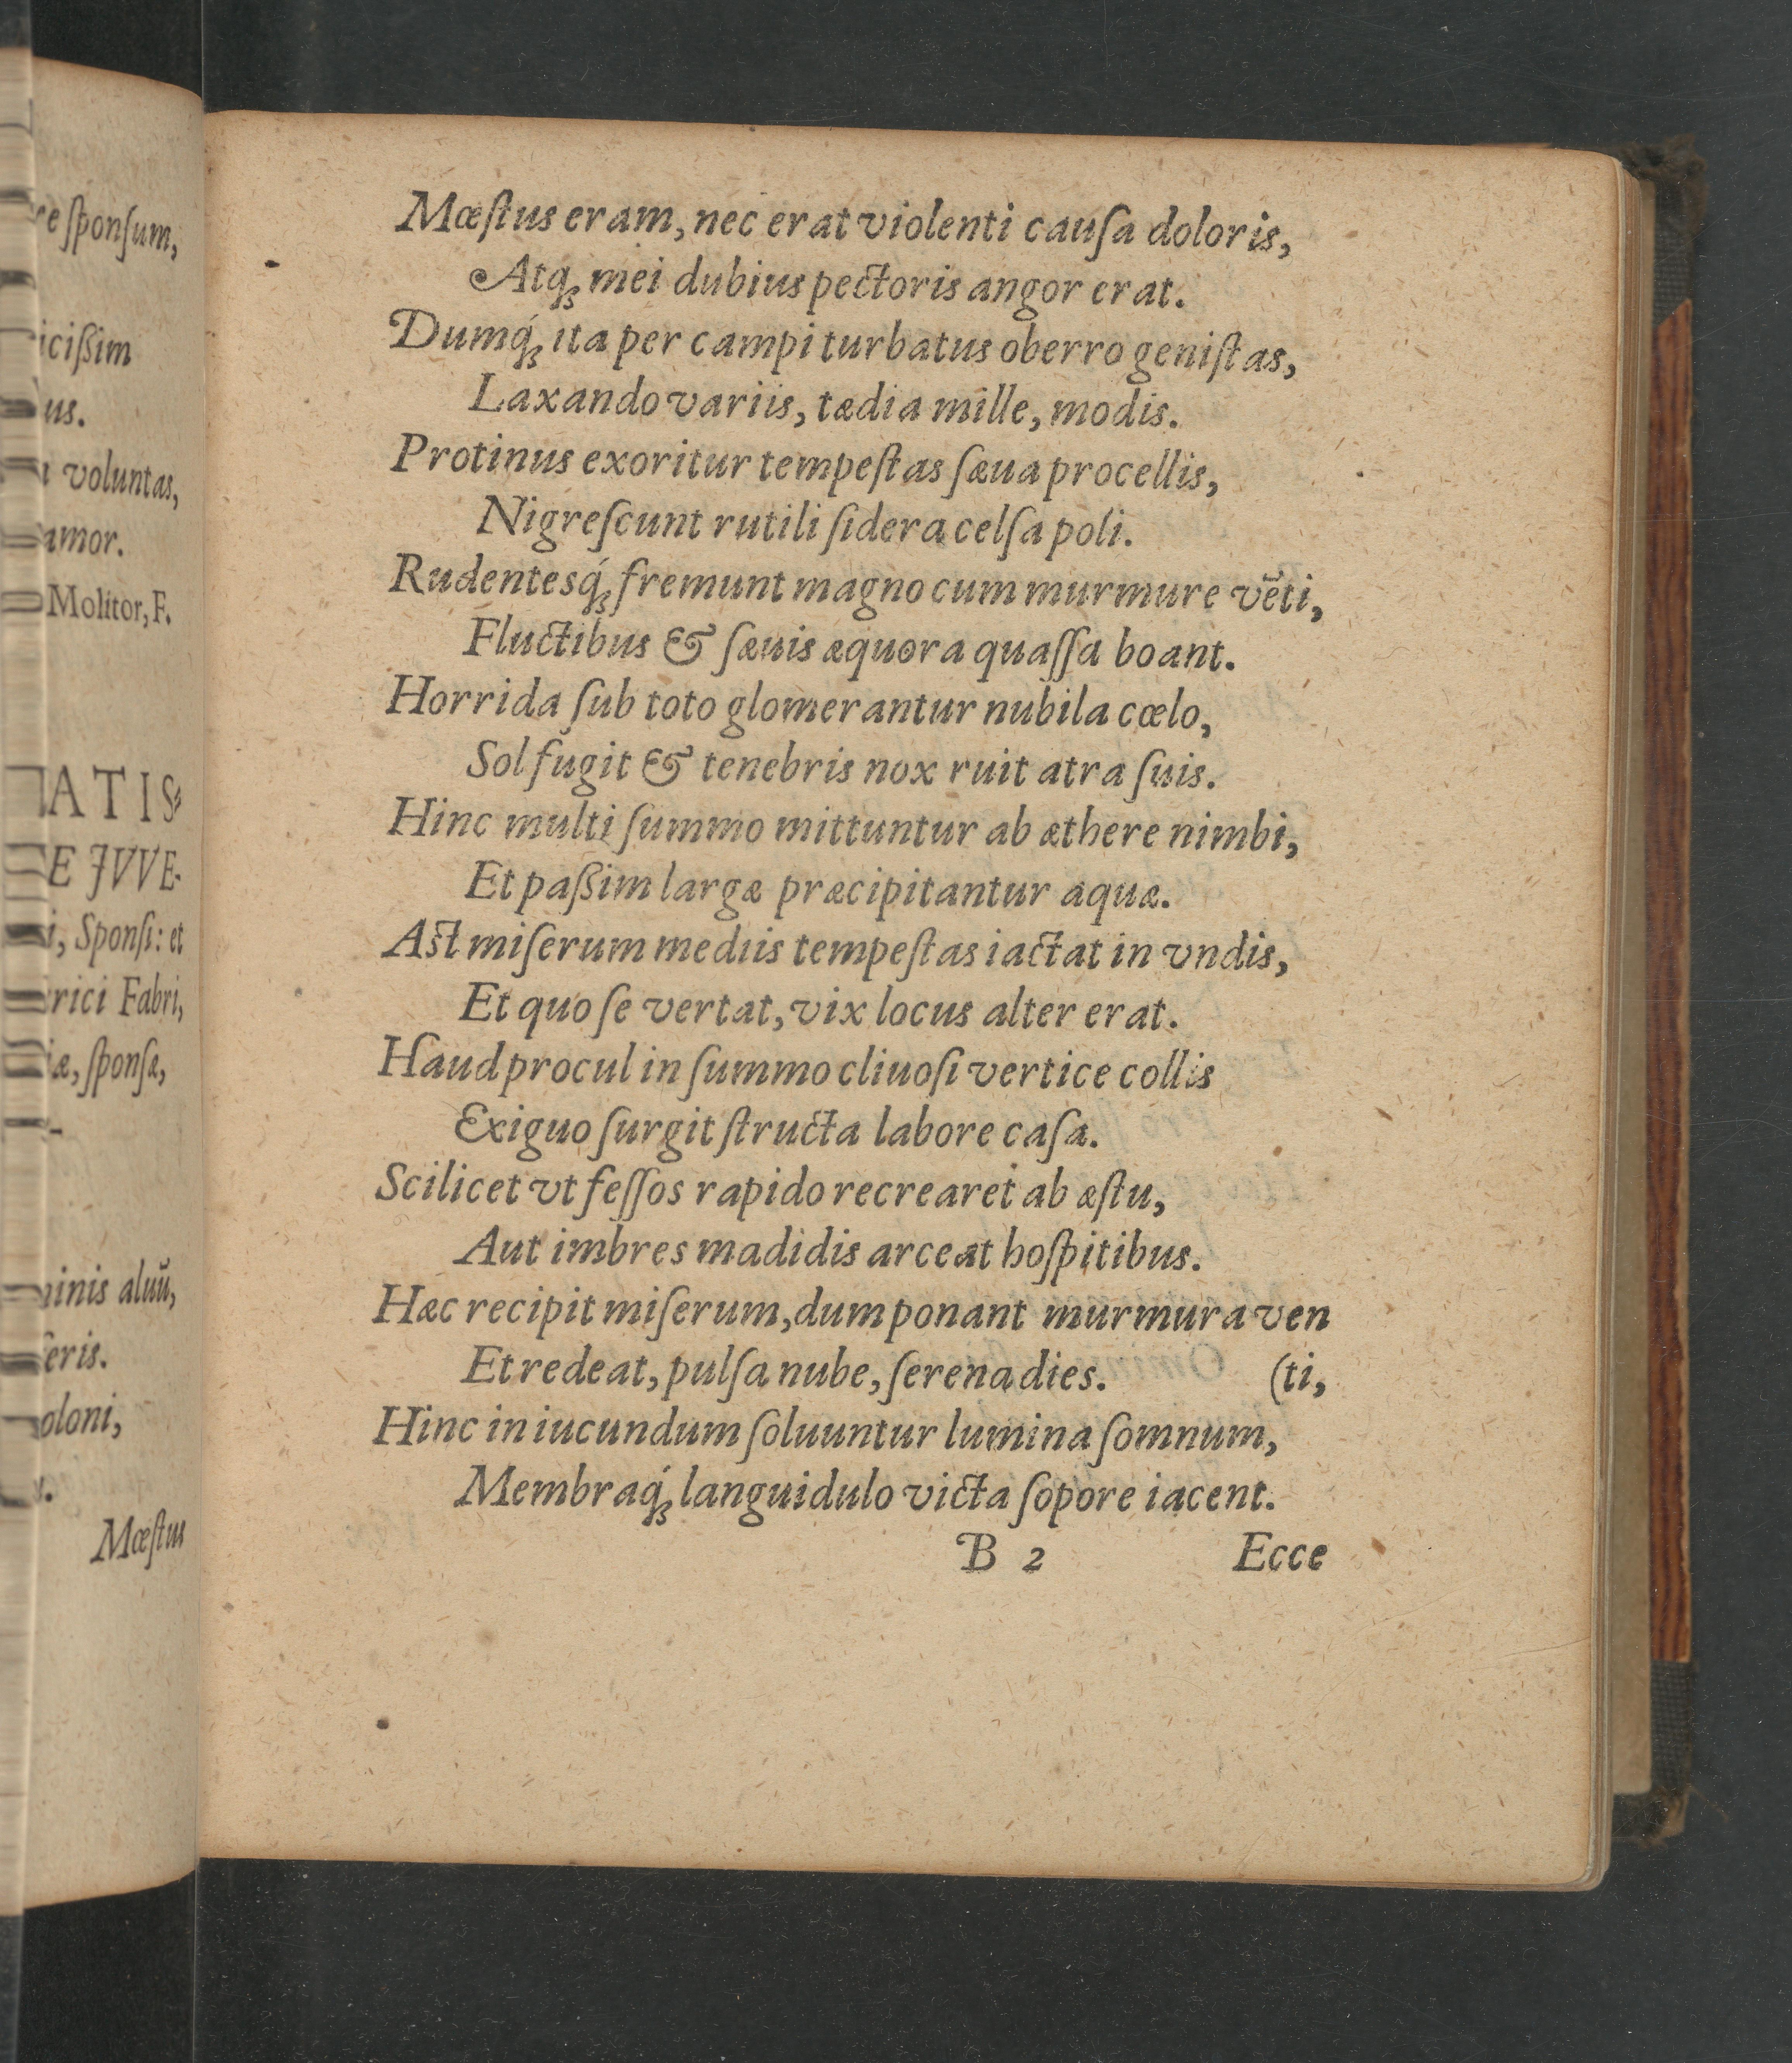 re ſponſum,
icißim
us.
voluntas,
amor.
Molitor, F.
ATIS⸗
E JVVE-
i, Sponſi: et
rici Fabri,
iæ, ſponſæ,
inis aluū,
eris.
oloni,
Mœſtus
Mœſtus eram, nec erat violenti cauſa doloris,
Atq; mei dubius pectoris angor erat.
Dumq́; ita per campi turbatus oberro geniſtas,
Laxando variis, tædia mille, modis.
Protinus exoritur tempeſtas ſæua procellis,
Nigreſcunt rutili ſidera celſa poli.
Rudentesq́; fremunt magno cum murmure vēti,
Fluctibus & ſæuis æquora quaſſa boant.
Horrida ſub toto glomerantur nubila cœlo,
Sol fugit & tenebris nox ruit atra ſuis.
Hinc multi ſummo mittuntur ab æthere nimbi,
Et paßim largæ præcipitantur aquæ.
Aſt miſerum mediis tempeſtas iactat in vndis,
Et quo ſe vertat, vix locus alter erat.
Haud procul in ſummo cliuoſi vertice collis
Exiguo ſurgit ſtructa labore caſa.
Scilicet vt feſſos rapido recrearet ab æſtu,
Aut imbres madidis arceat hoſpitibus.
Hæc recipit miſerum, dum ponant murmura ven
Et redeat, pulſa nube, ſerena dies. (ti,
Hinc in iucundum ſoluuntur lumina ſomnum,
Membraq́; languidulo victa ſopore iacent.
B 2 Ecce